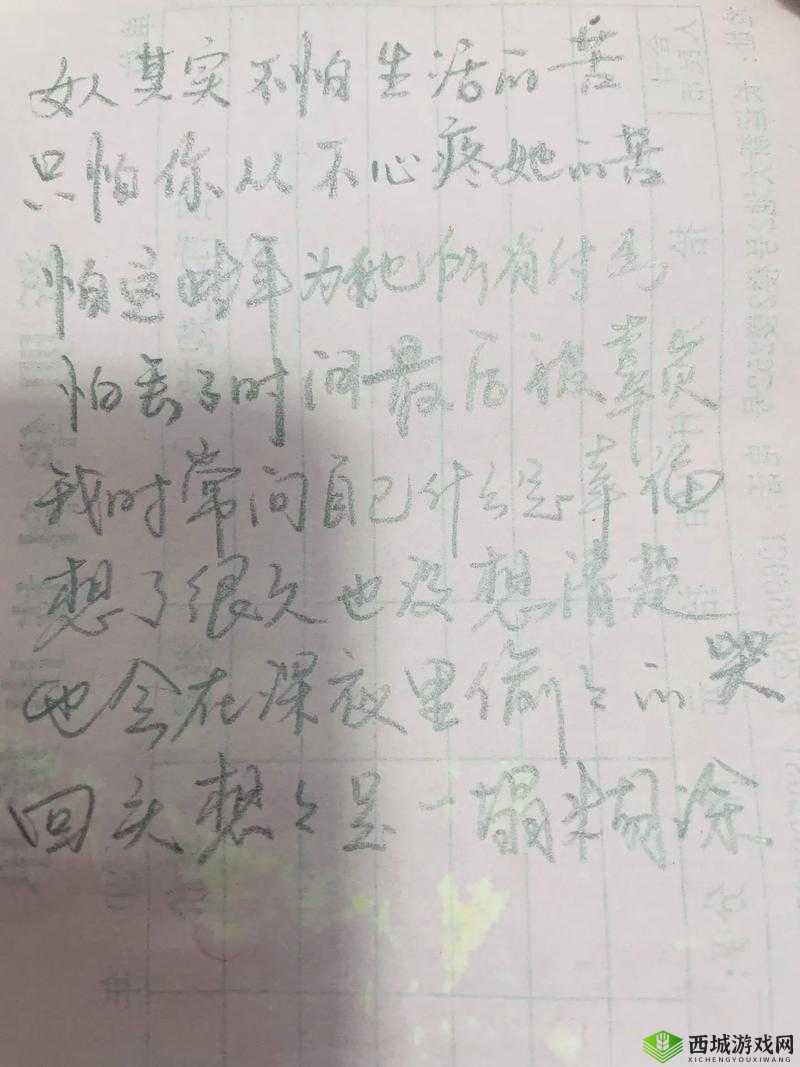 女人其实不怕生活的苦
只怕你从不心疼她的苦
怕这些年为他所有付出
怕丢了时间最后被辜负
我时常问自己什么是幸福
想了很久也没想清楚
也会在深夜里偷偷的哭
回头想想是一塌糊涂
西城游戏网
XICHENGYOUXIWANG